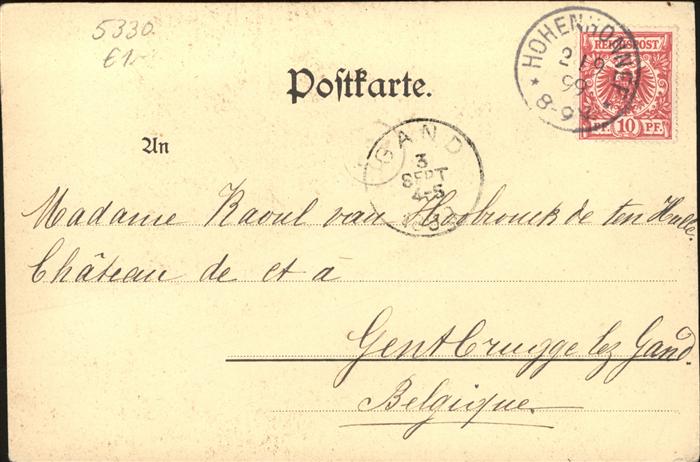 5330
€1-
Postkarte.
REICHSPOST
10 PF.
* HOHENHONNEF *
2/9
99
8-9V
An
GAND
3
SEPT
4-5
Madame Raoul van Hoobrouck de ten Hulle.
Château de et à
Gentbrugge lez Gand.
Belgique